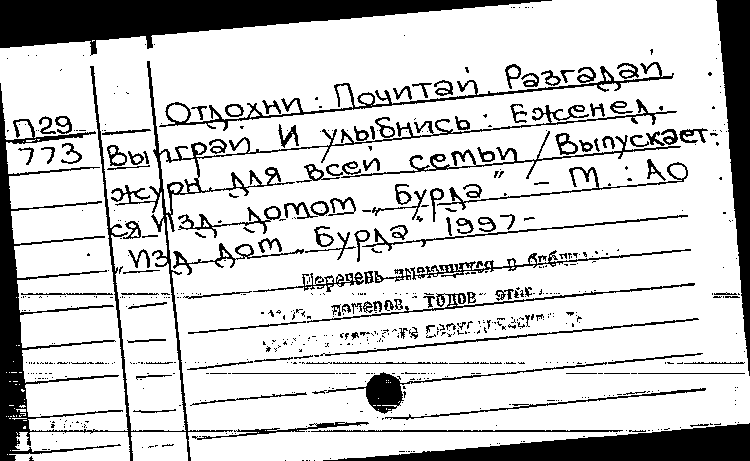 П29
773
Отдохни: Почитай. Разгадай
Выиграй. И улыбнись: Еженед.
журн. для всей семьи / Выпускает-
ся Изд. домом „Бурда". – М.: АО
„Изд. дом „Бурда", 1997-
Перечень имеющихся в
номеров, годов